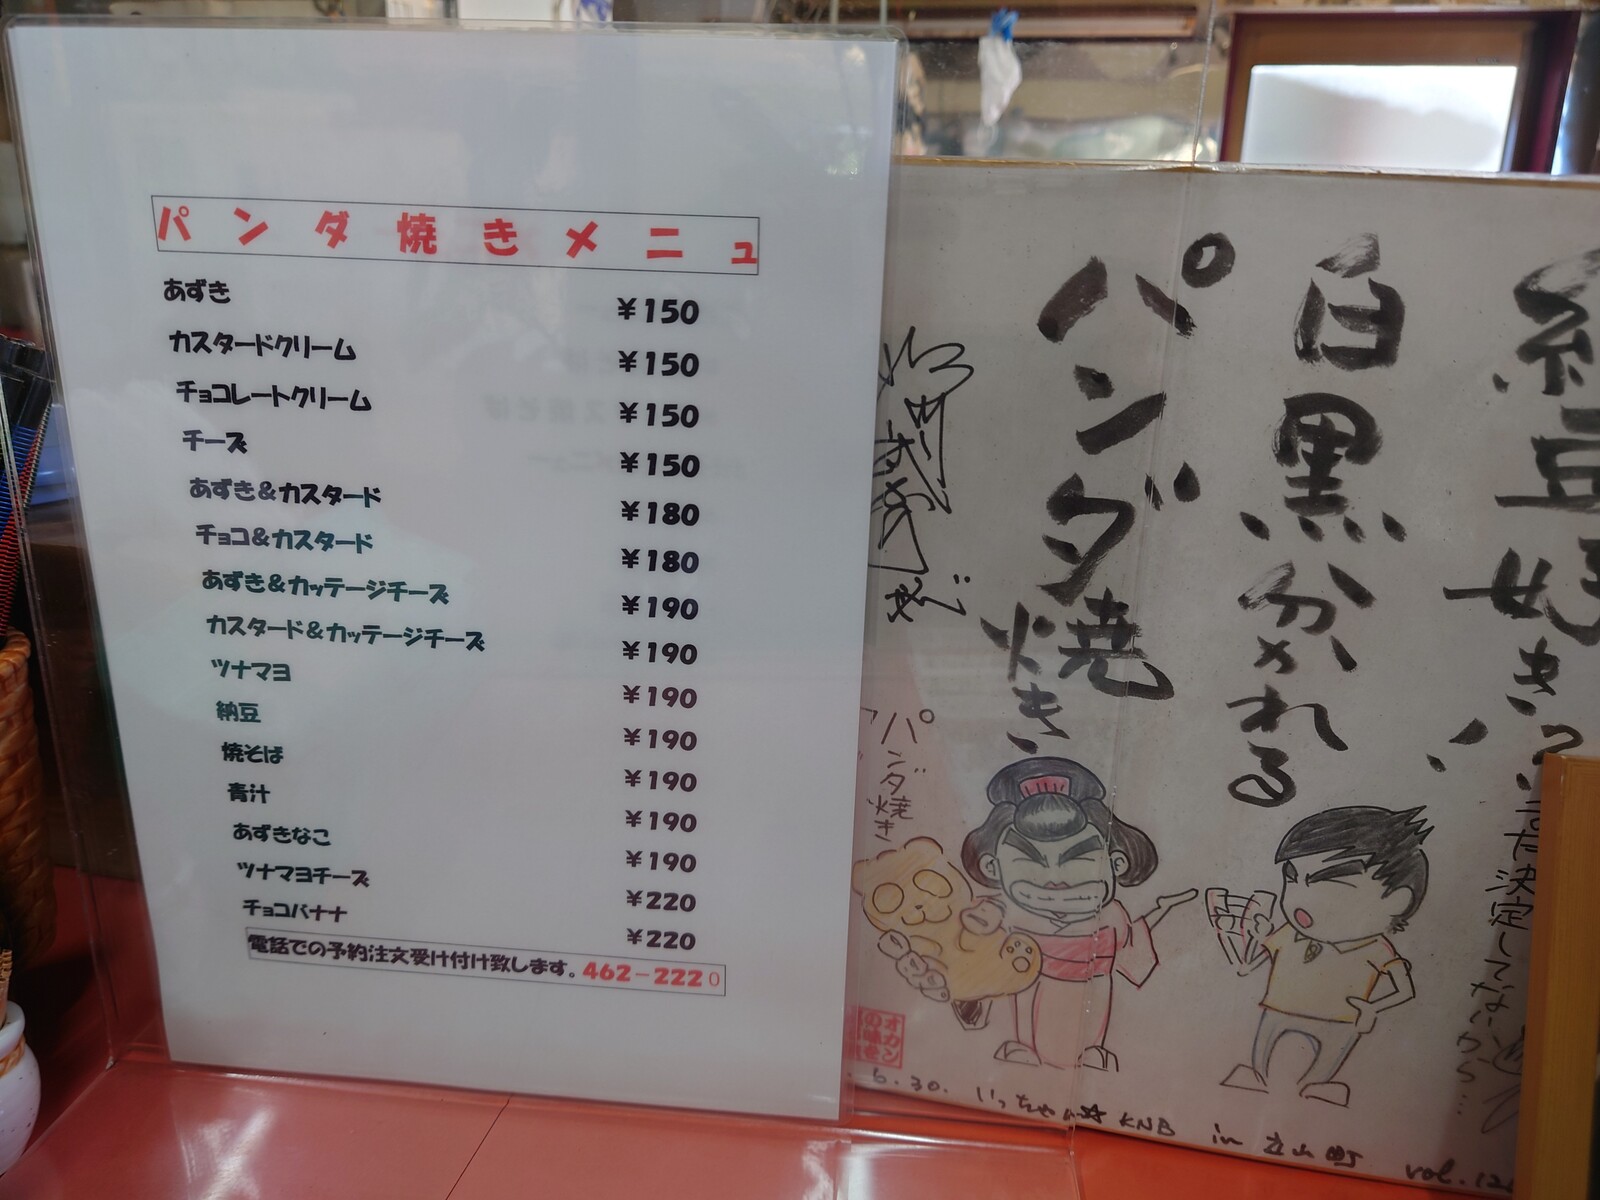 パンダ焼きメニュ
あずき ¥150
カスタードクリーム ¥150
チョコレートクリーム ¥150
チーズ ¥150
あずき&カスタード ¥180
チョコ&カスタード ¥180
あずき&カッテージチーズ ¥190
カスタード&カッテージチーズ ¥190
ツナマヨ ¥190
納豆 ¥190
焼そば ¥190
青汁 ¥190
あずきなこ ¥190
ツナマヨチーズ ¥220
チョコバナナ ¥220
電話での予約注文受け付け致します。462-2220
納豆好き
白黒分かれる
パンダ焼き
パンダ焼き
オカン
の味を
6.30. いっちゃん KNB in 立山町 vol.12